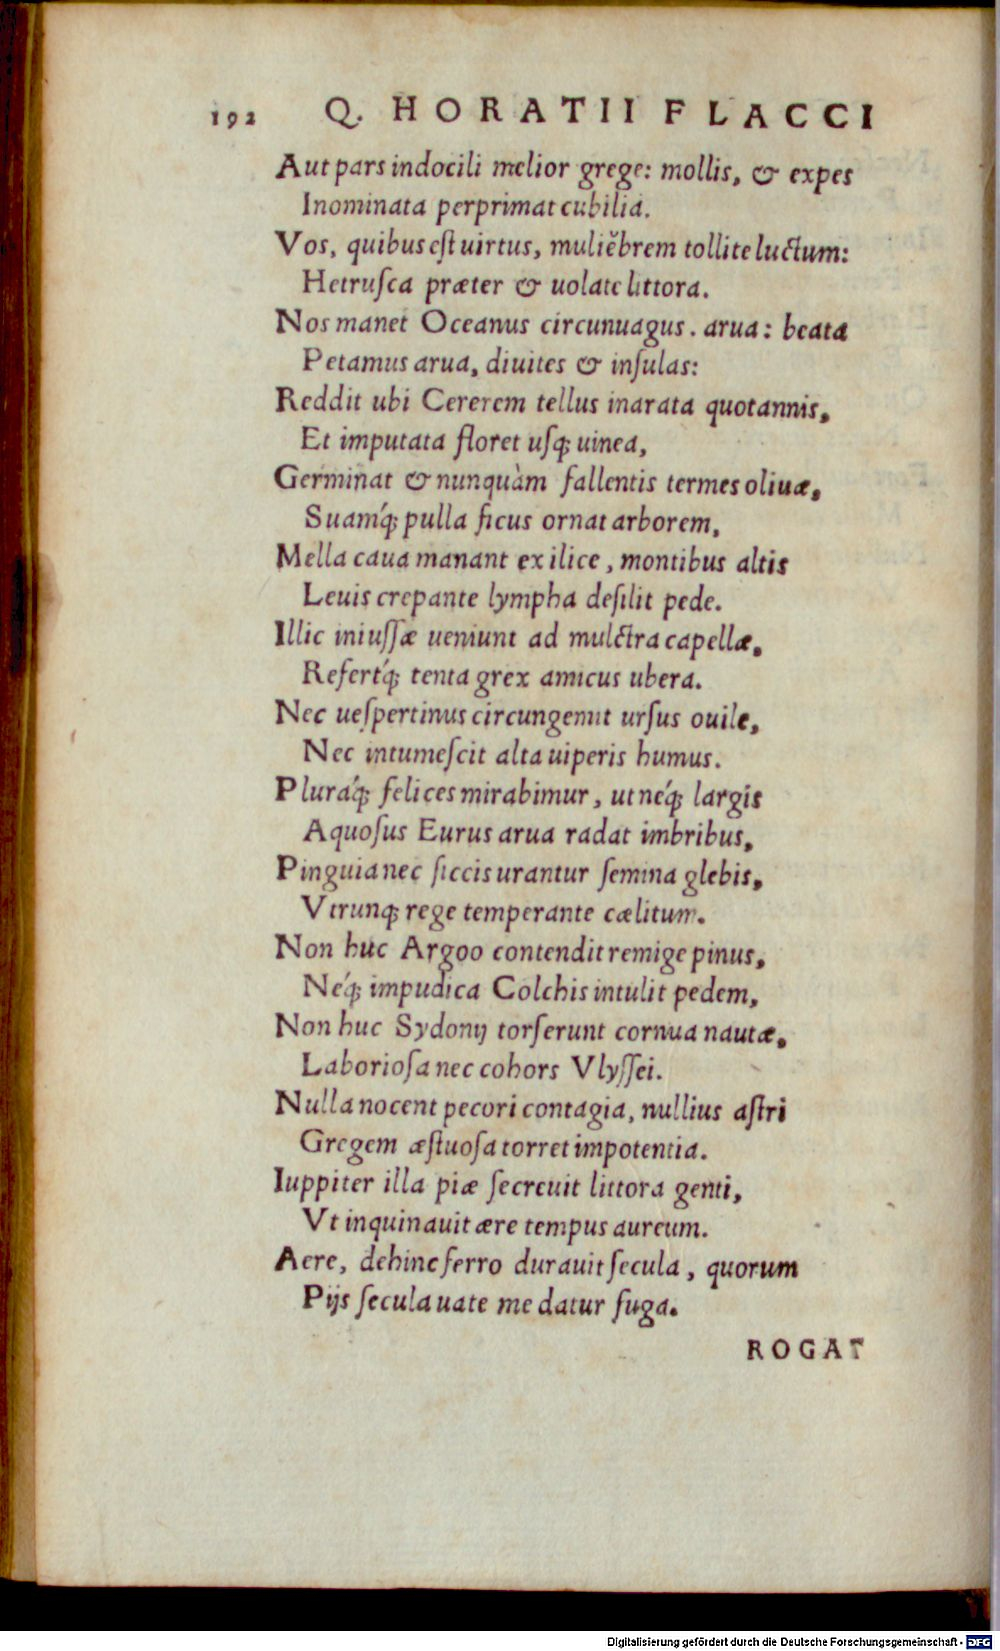 192 Q. HORATII FLACCI
Aut pars indocili melior grege: mollis, & expes
Inominata perprimat cubilia.
Vos, quibus eſt uirtus, muliĕbrem tollite luctum:
Hetruſca præter & uolate littora.
Nos manet Oceanus circunuagus. arua: beata
Petamus arua, diuites & inſulas:
Reddit ubi Cererem tellus inarata quotannis,
Et imputata floret uſq; uinea,
Germinat & nunquàm fallentis termes oliuæ,
Suamq́; pulla ficus ornat arborem,
Mella caua manant ex ilice, montibus altis
Leuis crepante lympha deſilit pede.
Illic iniuſſæ ueniunt ad mulctra capellæ,
Refertq́; tenta grex amicus ubera.
Nec ueſpertinus circungemit urſus ouile,
Nec intumeſcit alta uiperis humus.
Pluraq́; felices mirabimur, ut neq́; largis
Aquoſus Eurus arua radat imbribus,
Pinguia nec ſiccis urantur ſemina glebis,
Vtrunq; rege temperante cælitum.
Non huc Argoo contendit remige pinus,
Neq́; impudica Colchis intulit pedem,
Non huc Sydonij torſerunt cornua nautæ,
Laborioſa nec cohors Vlyſſei.
Nulla nocent pecori contagia, nullius aſtri
Gregem æſtuoſa torret impotentia.
Iuppiter illa piæ ſecreuit littora genti,
Vt inquinauit ære tempus aureum.
Aere, dehinc ferro durauit ſecula, quorum
Pijs ſecula uate me datur fuga.
ROGAT
Digitalisierung gefördert durch die Deutsche Forschungsgemeinschaft - DFG